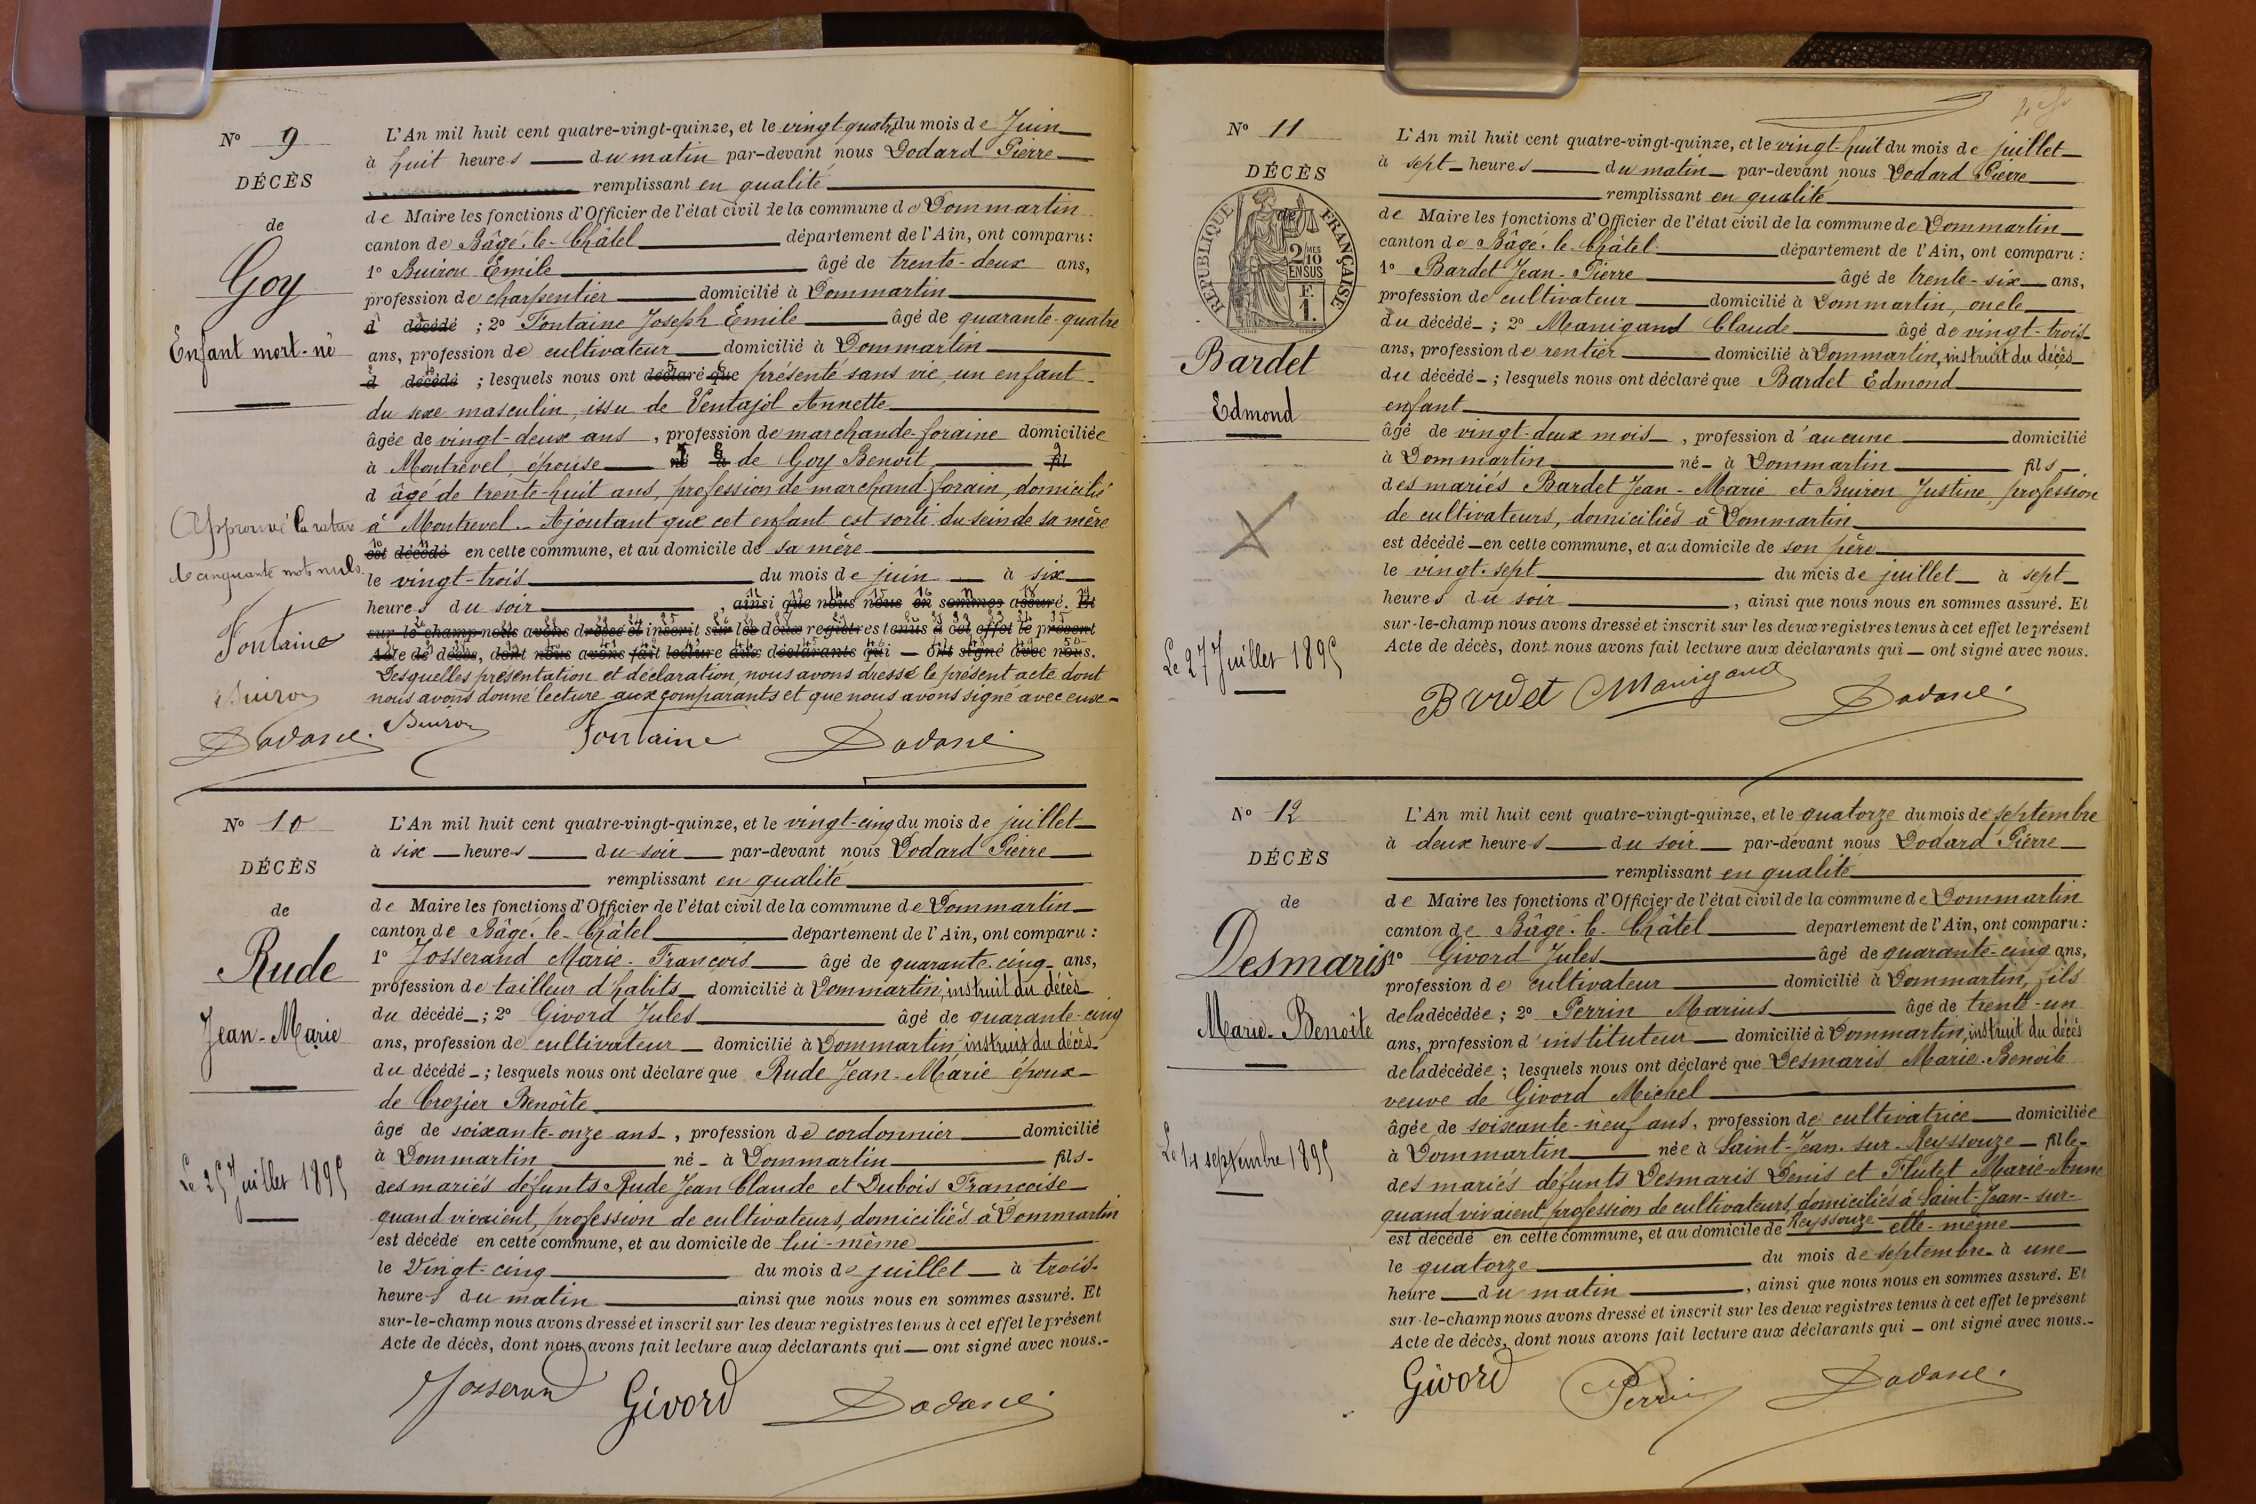 N° 9
DÉCÈS
de
Goy
Enfant mort-né
L'An mil huit cent quatre-vingt-quinze, et le vingt-quatre du mois de Juin
à huit heures du matin par-devant nous Dodard Pierre
remplissant en qualité
de Maire les fonctions d'Officier de l'état civil de la commune de Dommartin
canton de Bâgé-le-Châtel département de l'Ain, ont comparu :
1° Buiron Emile âgé de trente-deux ans,
profession de charpentier domicilié à Dommartin
d décédé ; 2° Fontaine Joseph Emile âgé de quarante-quatre
ans, profession de cultivateur domicilié à Dommartin
d décédé ; lesquels nous ont déclaré que présenté sans vie, un enfant
du sexe masculin, issu de Ventajol Annette
âgée de vingt-deux ans, profession de marchande-foraine domiciliée
à Montrevel, épouse né à de Goy Benoit fil
d âgé de trente-huit ans, profession de marchand forain, domicilié
à Montrevel. Ajoutant que cet enfant est sorti du sein de sa mère
est décédé en cette commune, et au domicile de sa mère
le vingt-trois du mois de juin à six
heures du soir, ainsi que nous nous en sommes assuré. Et
sur-le-champ nous avons dressé et inscrit sur les deux registres tenus à cet effet le présent
Acte de décès, dont nous avons fait lecture aux déclarants qui ont signé avec nous.
Desquelles présentation et déclaration, nous avons dressé le présent acte dont
nous avons donné lecture aux comparants et que nous avons signé avec eux.
Approuvé la rature
de cinquante mots nuls.
Fontaine
Buiron
Dodard
Buiron Fontaine Dodard
N° 10
DÉCÈS
de
Rude
Jean-Marie
Le 25 Juillet 1895
L'An mil huit cent quatre-vingt-quinze, et le vingt-cinq du mois de juillet
à six heures du soir par-devant nous Dodard Pierre
remplissant en qualité
de Maire les fonctions d'Officier de l'état civil de la commune de Dommartin
canton de Bâgé-le-Châtel département de l'Ain, ont comparu :
1° Josserand Marie-François âgé de quarante-cinq ans,
profession de tailleur d'habits domicilié à Dommartin, instruit du décès
du décédé ; 2° Givord Jules âgé de quarante-cinq
ans, profession de cultivateur domicilié à Dommartin, instruit du décès
du décédé ; lesquels nous ont déclaré que Rude Jean-Marie époux
de Crozier Benoîte
âgé de soixante-onze ans, profession de cordonnier domicilié
à Dommartin né à Dommartin fils
des mariés défunts Rude Jean Claude et Dubois Françoise
quand vivaient, profession de cultivateurs, domiciliés à Dommartin
est décédé en cette commune, et au domicile de lui-même
le Vingt-cinq du mois de juillet à trois
heures du matin ainsi que nous nous en sommes assuré. Et
sur-le-champ nous avons dressé et inscrit sur les deux registres tenus à cet effet le présent
Acte de décès, dont nous avons fait lecture aux déclarants qui ont signé avec nous.
Josserand Givord Dodard
N° 11
DÉCÈS
de
RÉPUBLIQUE FRANÇAISE
2/10 MES
EN SUS
F.
1.
Bardet
Edmond
Le 27 Juillet 1895
L'An mil huit cent quatre-vingt-quinze, et le vingt-huit du mois de juillet
à sept heures du matin par-devant nous Dodard Pierre
remplissant en qualité
de Maire les fonctions d'Officier de l'état civil de la commune de Dommartin
canton de Bâgé-le-Châtel département de l'Ain, ont comparu :
1° Bardet Jean-Pierre âgé de trente-six ans,
profession de cultivateur domicilié à Dommartin, oncle
du décédé ; 2° Manigand Claude âgé de vingt-trois
ans, profession de rentier domicilié à Dommartin, instruit du décès
du décédé ; lesquels nous ont déclaré que Bardet Edmond
enfant
âgé de vingt-deux mois, profession d'aucune domicilié
à Dommartin né à Dommartin fils
des mariés Bardet Jean-Marie et Buiron Justine, profession
de cultivateurs, domiciliés à Dommartin
est décédé en cette commune, et au domicile de son père
le vingt-sept du mois de juillet à sept
heures du soir, ainsi que nous nous en sommes assuré. Et
sur-le-champ nous avons dressé et inscrit sur les deux registres tenus à cet effet le présent
Acte de décès, dont nous avons fait lecture aux déclarants qui ont signé avec nous.
Bardet Manigand Dodard
N° 12
DÉCÈS
de
Desmaris
Marie-Benoîte
Le 14 septembre 1895
L'An mil huit cent quatre-vingt-quinze, et le quatorze du mois de septembre
à deux heures du soir par-devant nous Dodard Pierre
remplissant en qualité
de Maire les fonctions d'Officier de l'état civil de la commune de Dommartin
canton de Bâgé-le-Châtel département de l'Ain, ont comparu :
1° Givord Jules âgé de quarante-cinq ans,
profession de cultivateur domicilié à Dommartin, fils
de la décédée ; 2° Perrin Marius âgé de trente-un
ans, profession d'instituteur domicilié à Dommartin, instruit du décès
de la décédée ; lesquels nous ont déclaré que Desmaris Marie-Benoîte
veuve de Givord Michel
âgée de soixante-neuf ans, profession de cultivatrice domiciliée
à Dommartin née à Saint-Jean-sur-Reyssouze fille
des mariés défunts Desmaris Denis et Flutet Marie-Anne
quand vivaient, profession de cultivateurs, domiciliés à Saint-Jean-sur-
est décédé en cette commune, et au domicile de Reyssouze elle-même
le quatorze du mois de septembre à une
heure du matin, ainsi que nous nous en sommes assuré. Et
sur-le-champ nous avons dressé et inscrit sur les deux registres tenus à cet effet le présent
Acte de décès, dont nous avons fait lecture aux déclarants qui ont signé avec nous.
Givord Perrin Dodard